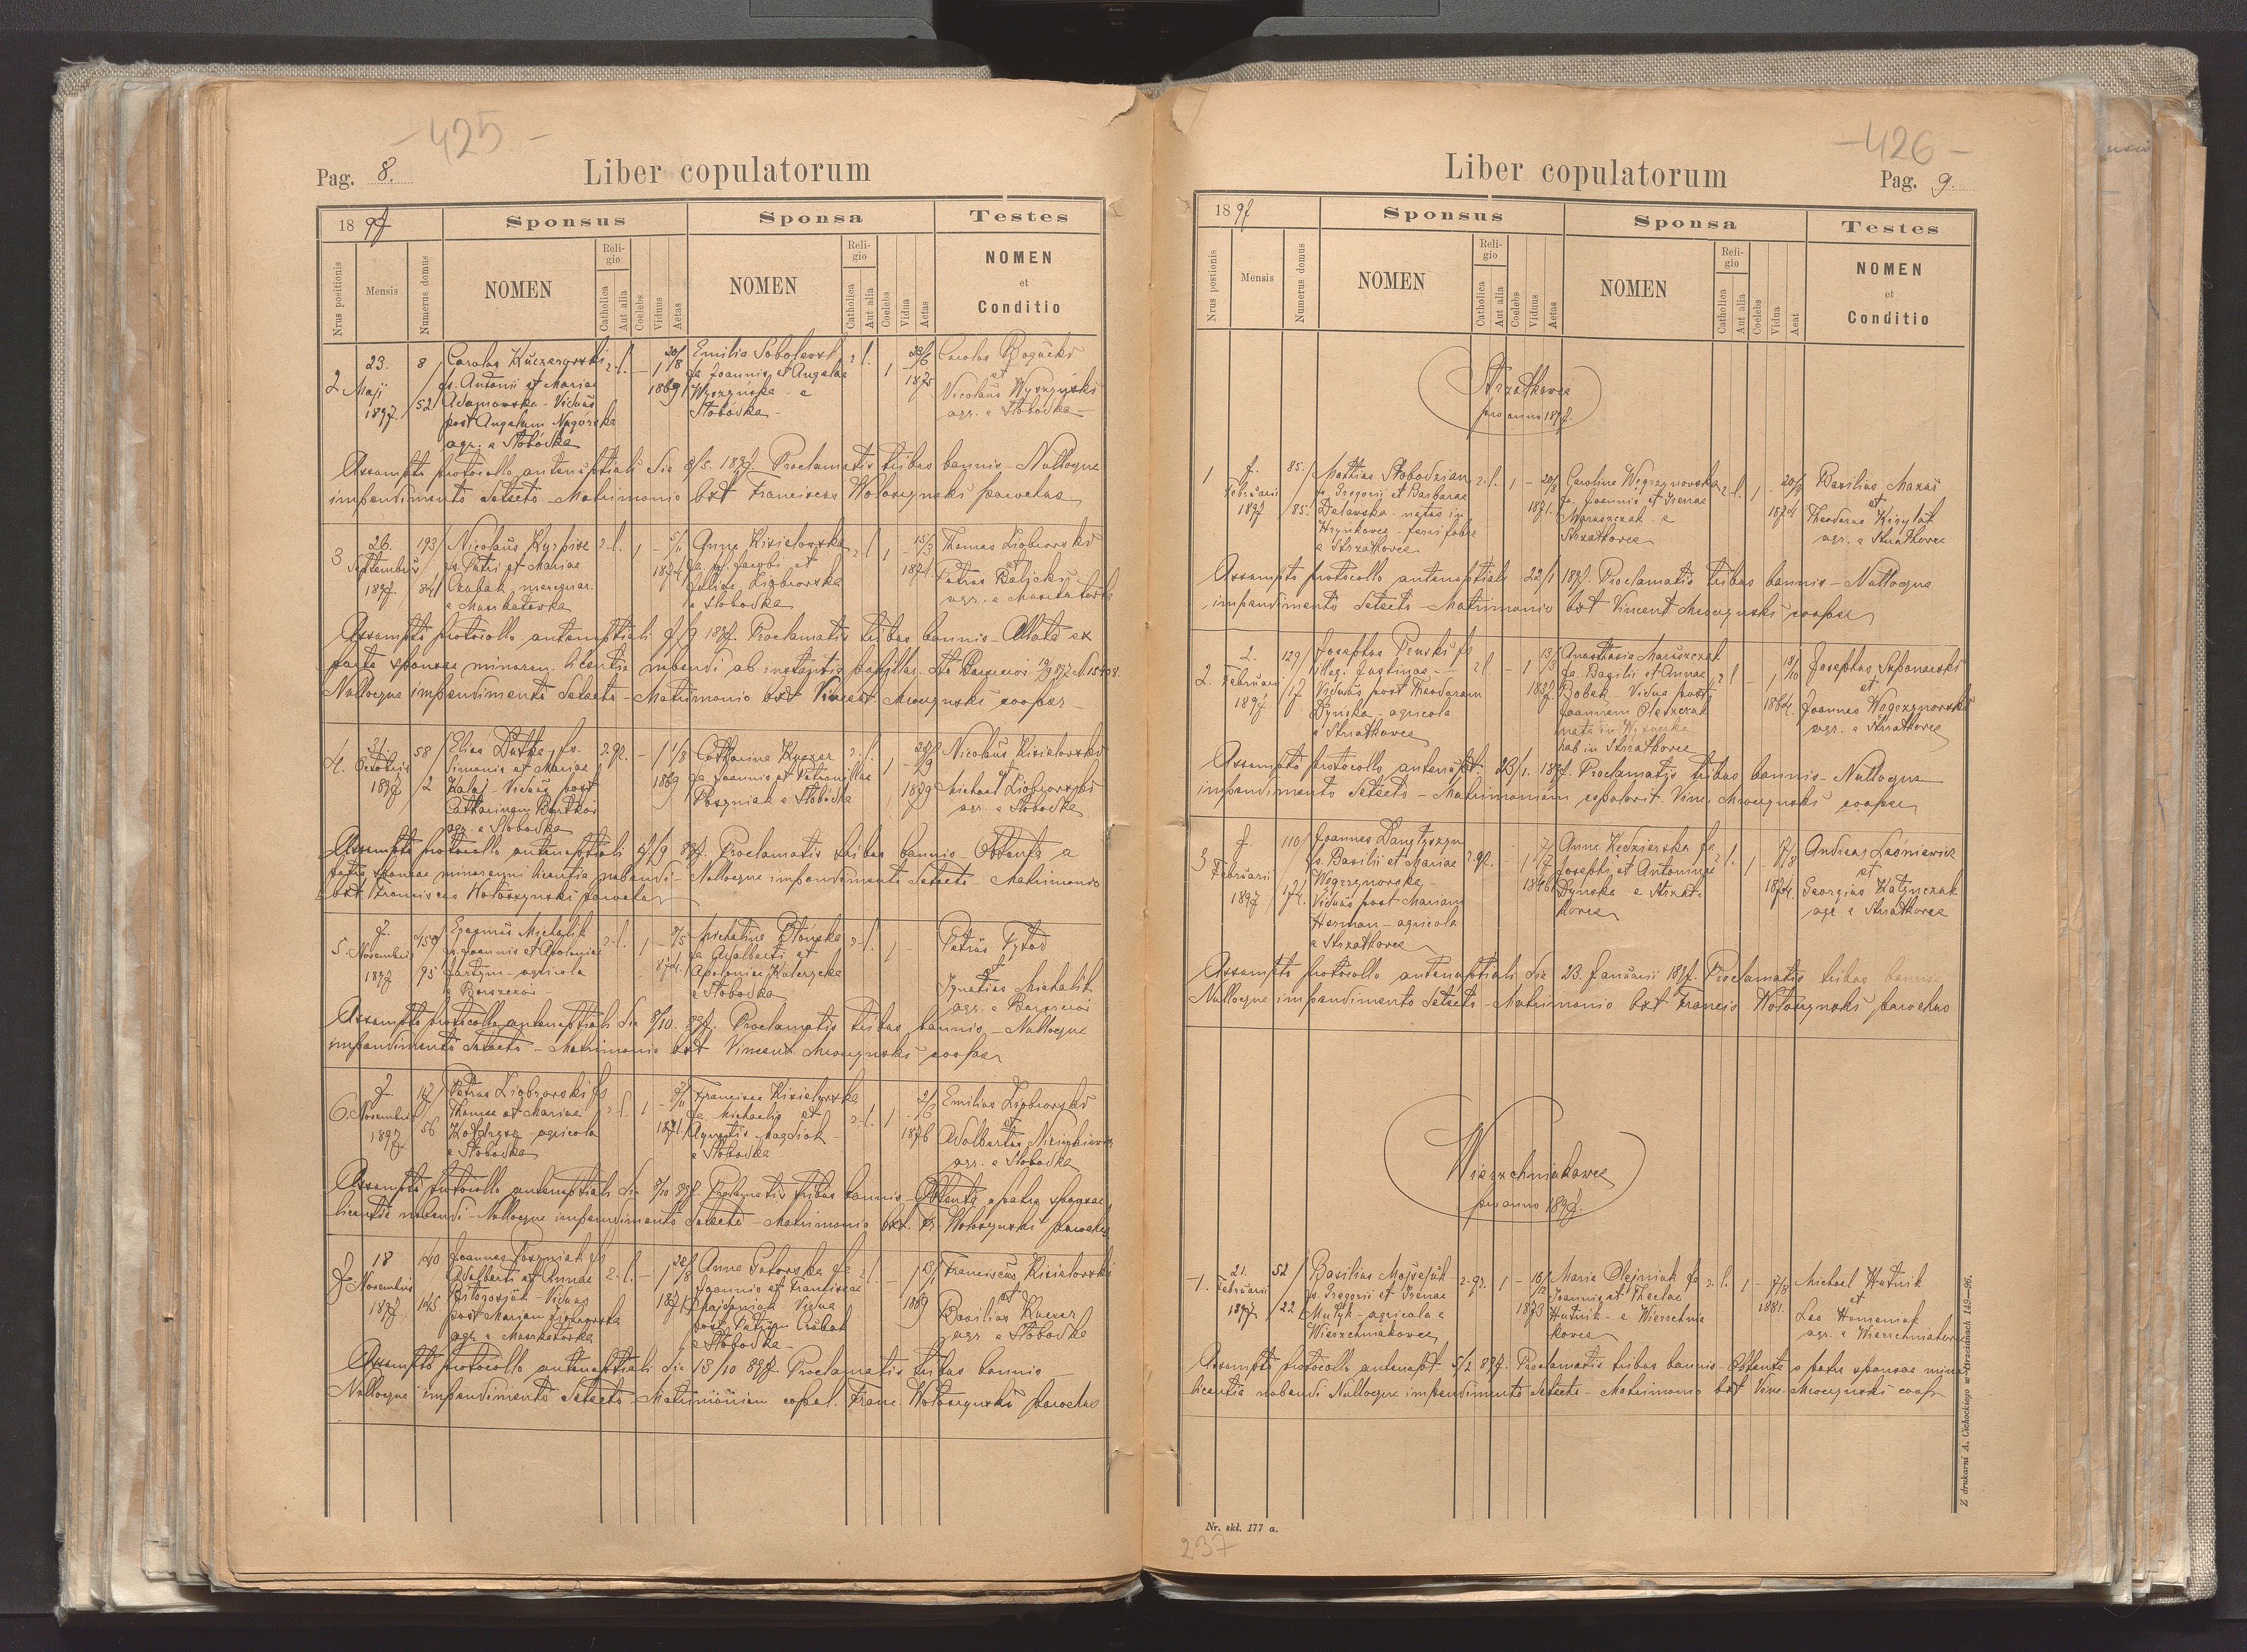 -425-
Pag. 8.
Liber copulatorum
1897
Sponsus
Sponsa
Testes
Nrus positionis
Mensis
Numerus domus
NOMEN
Religio
Catholica
Aut alia
Coelebs
Viduus
Aetas
NOMEN
Religio
Catholica
Aut alia
Coelebs
Vidua
Aetas
NOMEN
et
Conditio
2
23.
Maji
1897.
8
52
Carolus Kuczergowski
fs. Antonii et Mariae
Adamowska - Viduus
post Angelam Nagórska
agr. e Słobódka
r. l.
1
20/8
1869
Emilia Sobolewska
fa Joannis et Angelae
Wyszyńska - e
Słobódka -
r. l.
1
1875
Carolus Bogucki
et
Nicolaus Wyszyński
agr. e Słobodka -
Assumpto protocollo antenuptiali die 8/5. 1897. Proclamatis tribus bannis - Nulloque
impendimento detecto - Matrimonio bxt Franciscus Wołoszynski parochus
3
26.
Septembris
1897.
193
84
Nicolaus
fs. Petri et Mariae
e Muszkatówka
r. l.
1
5/11
1874
Anna Kisielowska
fa. Jacobi et
Juliae Ziobrowska
e Słobodka
r. l.
1
15/3
1874.
Thomas Ziobrowski
et
Petrus
agr. e
Assumpto protocollo antenuptiali 7/9 1897. Proclamatis tribus bannis - Allata ex
parte sponsae minoren. licentia nubendi ab
Nulloque impendimento detecto - Matrimonio bxt Vincent Mroczynski cooper -
4.
21.
Octobris
1897
58
2
Elias Dutka fs.
Simonis et Mariae
Viduus post
Catharinam
agr. e Słobodka
r. gr.
1
1/8
1869
Catharina Kuczer
fa. Joannis et Petronillae
Poszniak e Słobódka
r. l.
1
1879
Nicolaus Kisielowski
et
Michael Ziobrowski
agr. e Słobodka
Assumpto protocollo antenuptiali Proclamatis tribus bannis - Obtenta a
patre sponsae minorenni licentia nubendi - Nulloque impendimento detecto - Matrimonio
bxt Franciscus Wołoszynski parochus
5.
7.
Novembris
1897
95
Erasmus Michalik
fs. Joannis et Apoloniae
Jastzym - agricola
e Borszczów -
r. l.
1
874.
Michalina Błońska
fa Adalberti et
Apoloniae
e Słobodka
r. l.
1
Petrus Tytor
et
Ignatius Michalik
agr. e Borszczów
Assumpto protocollo antenuptiali die 8/10. 897. Proclamatis tribus bannis - Nulloque
impendimento detecto - Matrimonio bxt Vincent Mroczynski cooper
6.
7.
Novembris
1897
56
Petrus Ziobrowski fs
Thomae et Mariae
agricola
e Słobodka
r. l.
1
1871
Francisca Kisielowska
fa Michaelis et
Agnetis
e Słobodka
r. l.
1
1876
Emilius Ziobrowski
et
Adalbertus
agr. e Słobodka
Assumpto protocollo antenuptiali die 8/10 897. Proclamatis tribus bannis - Obtenta a patre sponsae
licentia nubendi - Nulloque impendimento detecto - Matrimonio bxt. Fr. Wołoszynski parochus
7.
18
Novembris
1897
140
145
Joannes Poszniak fs
Adalberti et Annae
Viduus
post Mariam Ziobrowska
agr. e Muszkatówka
r. l.
1
1871
Anna Sutorska fa
Joannis et Franciscae
Vidua
post Petrum Czubak
e Słobodka -
1
1869
Franciscus Kisielowski
et
Basilius Kuczer
agr. e Słobodka
Assumpto protocollo antenuptiali die 13/10 897. Proclamatis tribus bannis
Nulloque impendimento detecto - Matrimonium copul. Franc. Wołoszynski parochus
-426-
Liber copulatorum
Pag. 9.
1897
Sponsus
Sponsa
Testes
Nrus postionis
Mensis
Numerus domus
NOMEN
Religio
Catholica
Aut alia
Coelebs
Viduus
Aetas
NOMEN
Religio
Catholica
Aut alia
Coelebs
Vidua
Aeat
NOMEN
et
Conditio
Strzałkowce
pro anno 1897.
1
7.
Februarii
1897
85.
85.
Mathias Słobodzian
fs. Gregorii et Barbarae
Delawska - natus in
Hrynkowce - ferri faber
e Strzałkowce
r. l.
1
20/8
1871.
Carolina Węgrzynowska
fa. Joannis et Irenae
Maruszczak - e
Strzałkowce
r. l.
1
20/7
1874
Basilius Maruś
et
Theodorus Kiryluk
agr. e Strzałkowce
Assumpto protocollo antenuptiali 22/1 1897. Proclamatis tribus bannis - Nulloque
impendimento detecto - Matrimonio bxt Vincent Mroczynski cooper
2.
2.
Februarii
1897
129
17
Josephus Pruski fs
illeg. Justinae -
Viduus post Theodoram
Dynska - agricola
e Strzałkowce
r. l.
1
13/3
1837.
Anastasia Maruszczak
fa. Basilii et Annae
Bobek - Vidua post
Joannem Oleszczak
nata in Wysuczka
hab in Strzałkowce
r. l.
1
18/10
1864.
Josephus Szponarski
et
Joannes Węgrzynowski
agr. e Strzałkowce
Assumpto protocollo antenupt. 23/1. 1897. Proclamatis tribus bannis - Nulloque
impendimento detecto - Matrimonium copulavit Vinc. Mroczynski cooper
3
7.
Februarii
1897
110
174.
Joannes Danyłyszyn
fs. Basilii et Mariae
Węgrzynowska -
Viduus post Mariam
Herman - agricola
e Strzałkowce
r. gr.
1
7/7
1846
Anna Kedzierska fa
Josephi et Antoninae
Dynska e Strzał-
kowce
l.
1
7/8
1874.
Andreas Leśniewicz
et
Georgius Katynczuk
agr e Strzałkowce
Assumpto protocollo antenuptiali die 23. Januarii 1897. Proclamatis tribus bannis
Nulloque impendimento detecto - Matrimonio bxt Francis Wołoszynski parochus
Wierzchniakowce
pro anno 1897.
1.
21.
Februarii
1897
52
22
Basilius Mojseiuk
fs. Gregorii et Irenae
Mutyk - agricola e
Wierzchniakowce
r. gr.
1
16/12
1873
Maria Olejniuk fa
Joannis et Theclae
Hutnik - e Wierzchnia
kowce
r. l.
1
7/8
1881.
Michael Hutnik
et
Leo Humeniuk
agr. e Wierzchniakowce
Assumpto protocollo antenupt. 5/2 897. Proclamatis tribus bannis - Obtenta a patre sponsae minor
licentia nubendi Nulloque impendimento detecto - Matrimonio bxt Vinc. Mroczynski coop
Nr. skł. 177 a.
237
Z drukarni A. Cichockiego w Brzeżanach 149-96.